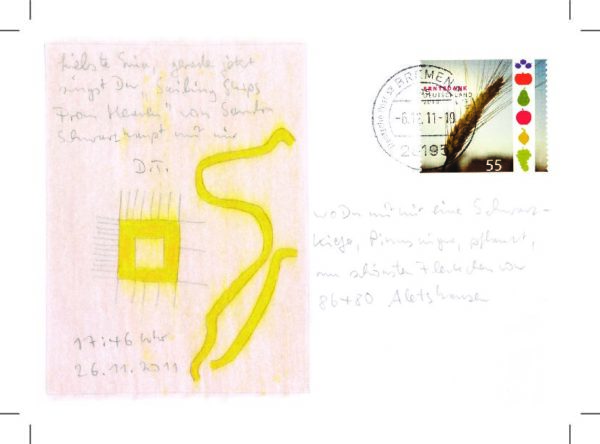 Liebste Enia, gerade jetzt
singst Du "Sailing Ships
From Heaven" von Sandra
Schwarzhaupt mit mir
D.T.
17:46 Uhr
26.11.2011
BREMEN
-6.12.11-19
28195
ERNTEDANK
DEUTSCHLAND
55
wo Du mit mir eine Schwarz-
kiefer, Pinus nigra, pflanzt,
am schönsten Fleckchen von
86480 Aletshausen